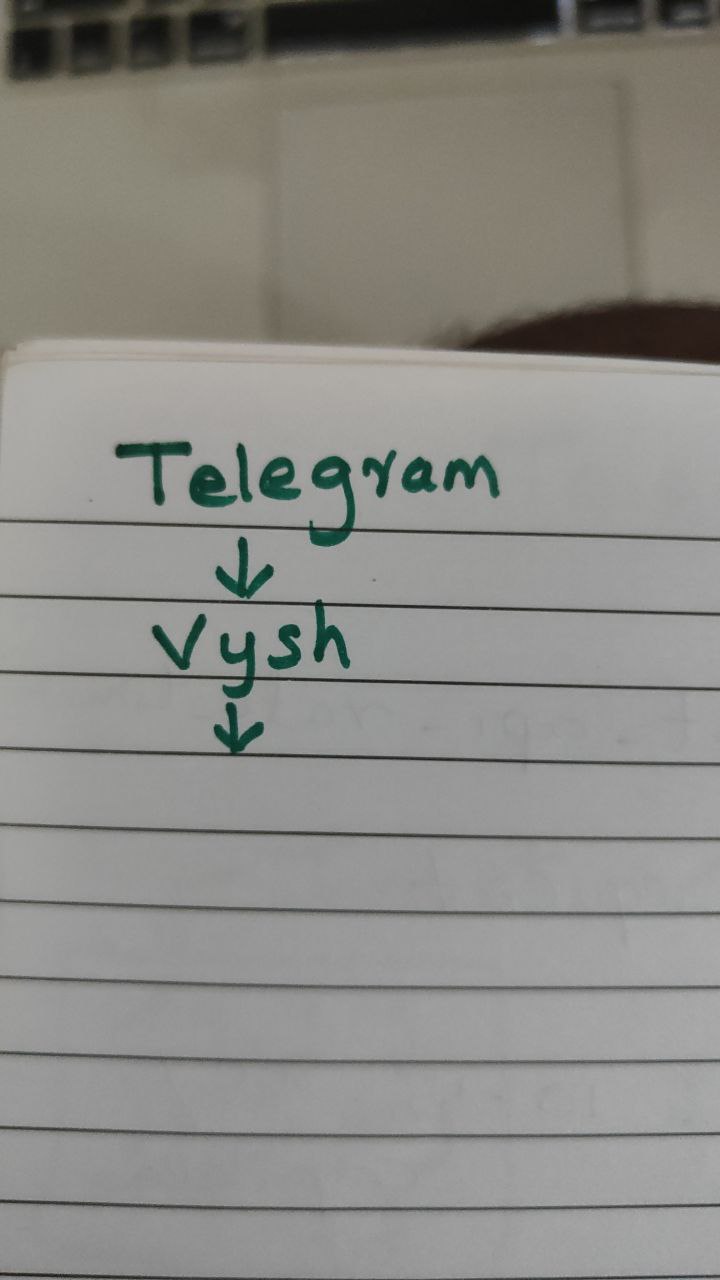 Telegram
↓
Vysh
↓